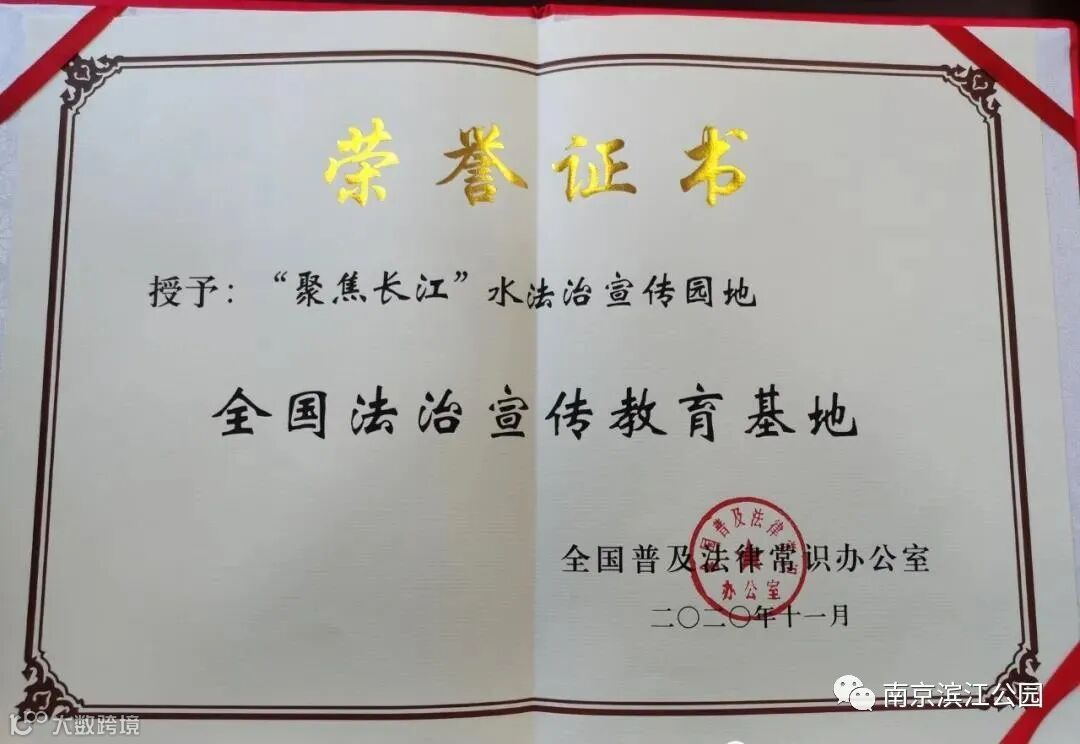 荣誉证书
授予：“聚焦长江”水法治宣传园地
全国法治宣传教育基地
全国普及法律常识办公室
全国普及法律常识
办公室
二〇二〇年十一月
南京滨江公园
大数跨境